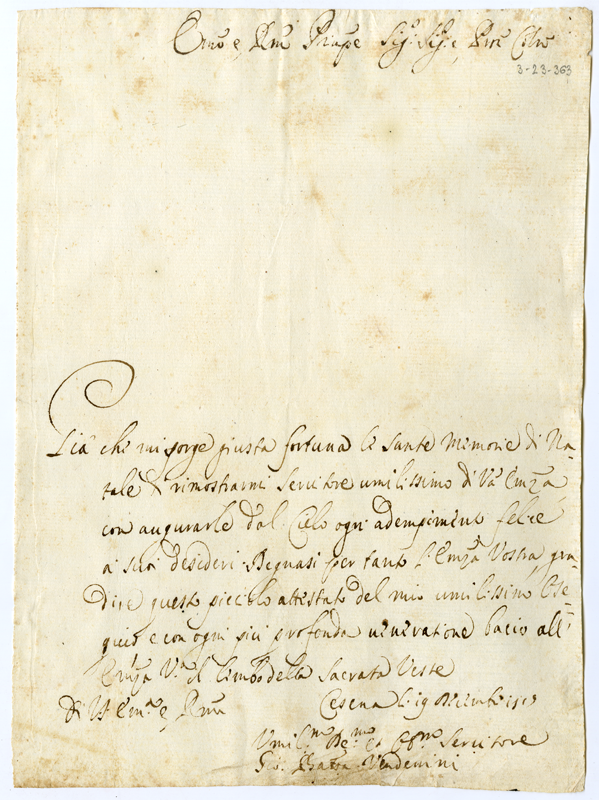 Emo e, Rmo Prinpe Sigr. Sigr. e, Pne Colmo
3-23-363
Già che mi porge giusta fortuna le sante Memorie di Na-
tale di rimostrarmi Servitore umilissimo di Va Emza
con augurarle dal Cielo ogni adempimento felice
a suoi desideri Degnasi per tanto l'Emza Vostra gra-
dire questo piccolo attestato del mio umilissimo Osse-
quio e con ogni più profonda veneratione bacio all'
Emza Va il lembo della Sacrata Veste
Di VE Emma e, Rma Cesena li 19 Decembre
Umilmo Demo et Obmo Servitore
Gio. Batta Vendemini